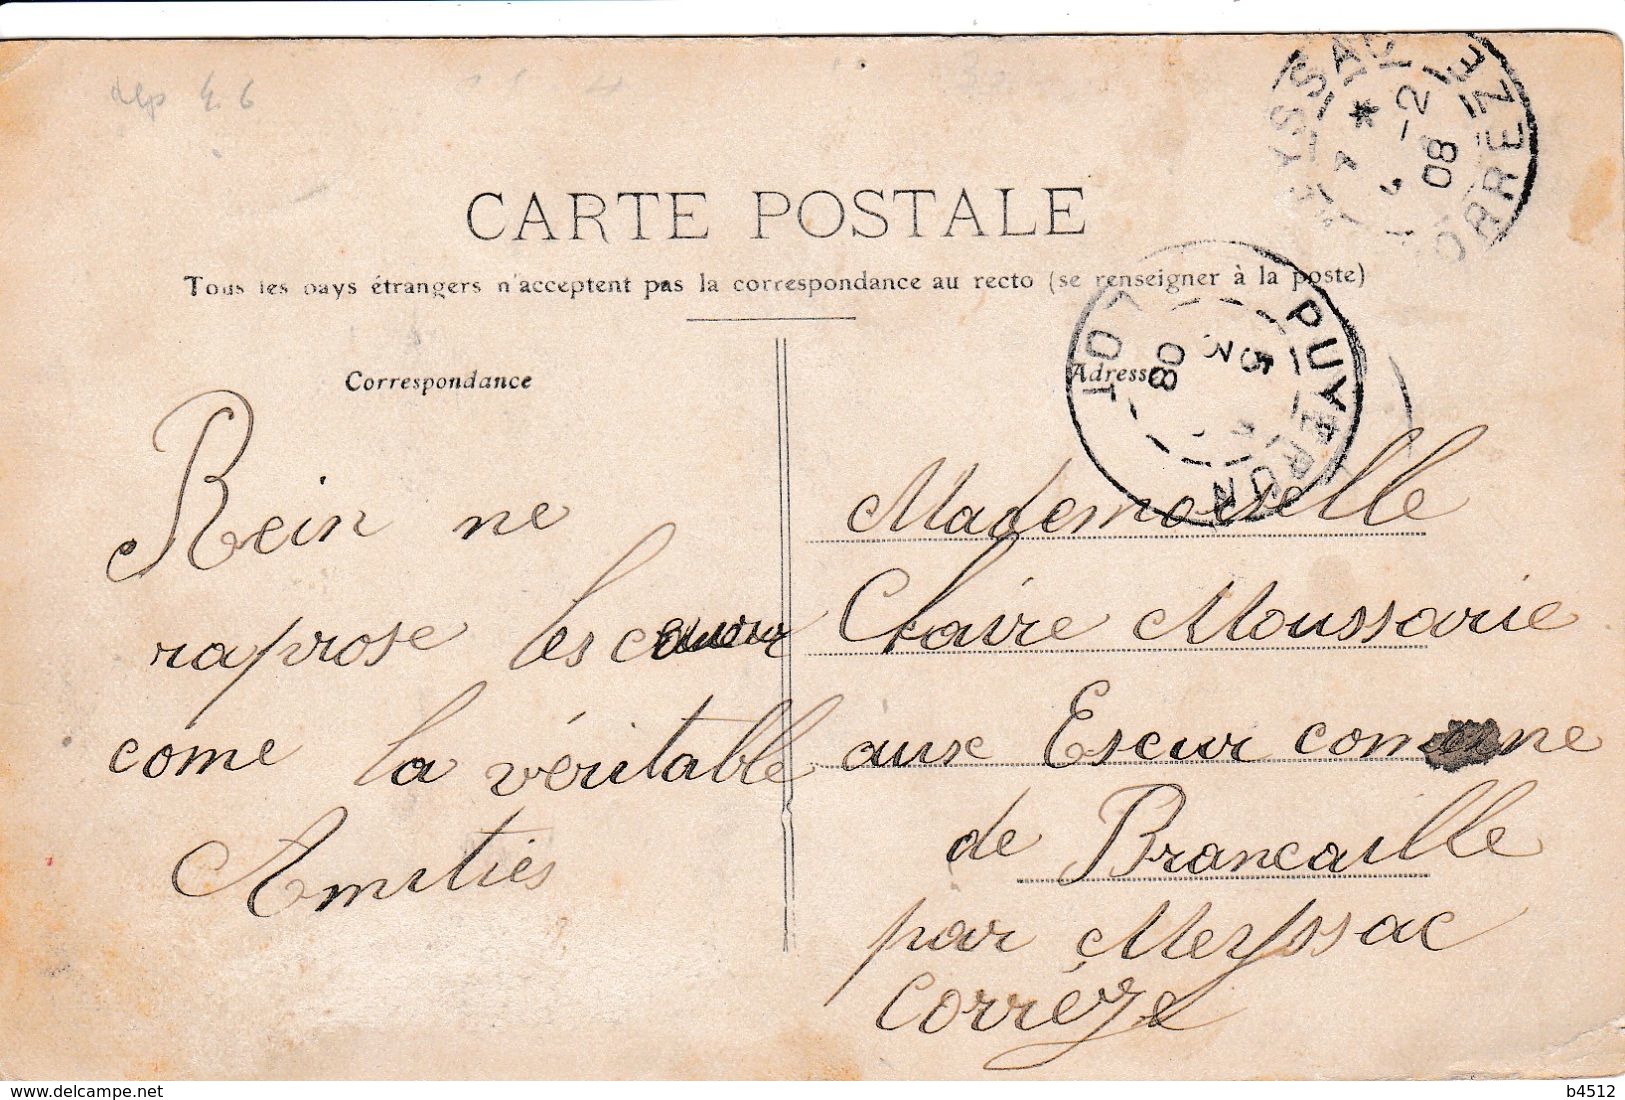 dep 4.6
CARTE POSTALE
Tous les pays étrangers n'acceptent pas la correspondance au recto (se renseigner à la poste)
Correspondance
Adresse
MEYSSAC
CORRÈZE
08
PUYBRUN
LOT
5
3
08
Rein ne
raprose les coeur
come la véritable
Amities
Mademoiselle
Claire Moussarie
aux Escur comune
de Brancaille
par Meyssac
Corrèze
delcampe.net
b4512